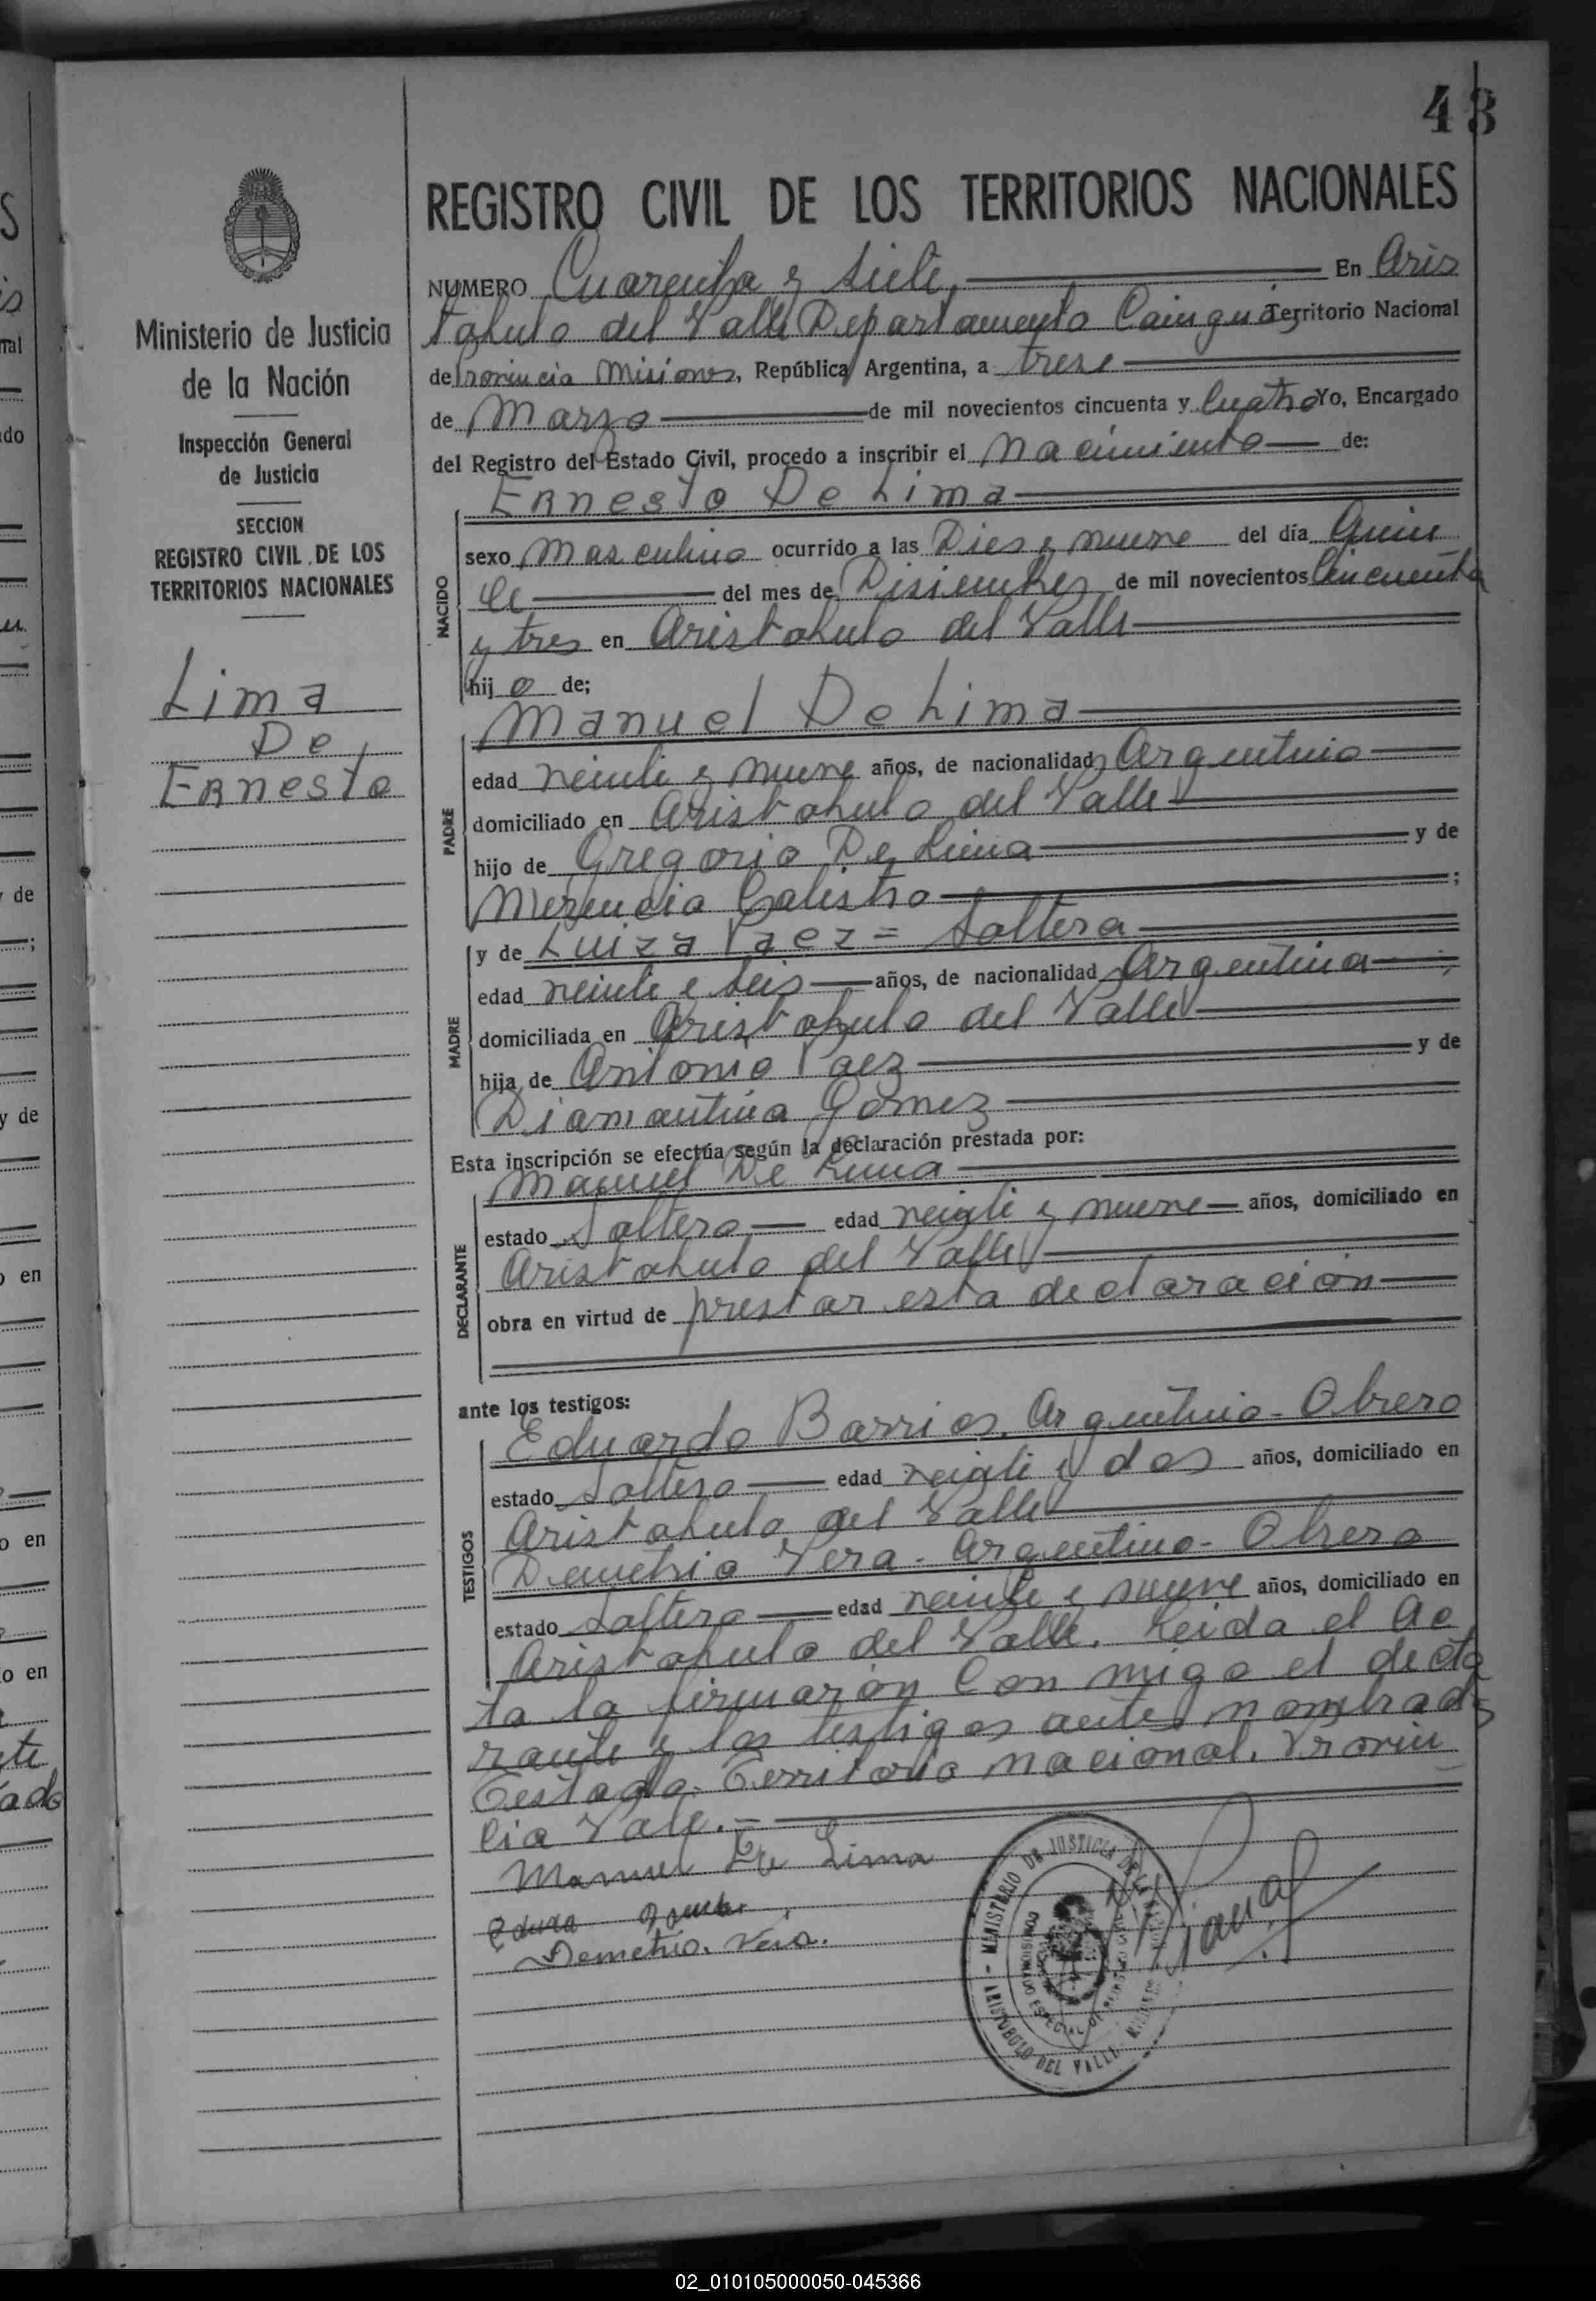 43
REGISTRO CIVIL DE LOS TERRITORIOS NACIONALES
Ministerio de Justicia
de la Nación
Inspección General
de Justicia
SECCION
REGISTRO CIVIL DE LOS
TERRITORIOS NACIONALES
Lima
De
Ernesto
NUMERO Cuarenta y siete, En Aris
tobulo del Valle Departamento Cainguás Territorio Nacional
de Provincia Misiones, República Argentina, a trese
de Marzo de mil novecientos cincuenta y Cuatro Yo, Encargado
del Registro del Estado Civil, procedo a inscribir el Nacimiento de:
Ernesto De Lima
NACIDO
sexo Masculino ocurrido a las Dies y nueve del día Quin
ce del mes de Disiembre de mil novecientos Cincuenta
y tres en Aristobulo del Valle
hijo de;
Manuel De Lima
PADRE
edad veinte y nueve años, de nacionalidad Argentino
domiciliado en Aristobulo del Valle
hijo de Gregorio De Lima y de
Merencia Calistro ;
MADRE
y de Luiza Paez = Soltera
edad veinte y seis años, de nacionalidad Argentina ;
domiciliada en Aristobulo del Valle
hija de Antonio Paez y de
Diamantina Gomez
Esta inscripción se efectúa según la declaración prestada por:
Manuel De Lima
DECLARANTE
estado Soltero edad veinte y nueve años, domiciliado en
Aristobulo del Valle
obra en virtud de prestar esta declaración
ante los testigos:
Eduardo Barrios, Argentino - Obrero
TESTIGOS
estado Soltero edad veinte y dos años, domiciliado en
Aristobulo del Valle
Demetrio Vera - Argentino - Obrero
estado Soltero edad veinte y nueve años, domiciliado en
Aristobulo del Valle. Leida el Ac
ta la firmarón Con migo el decla
rante y los testigos antes nombrados
Testado: Territorio Nacional. Provin
cia Vale.-
Manuel De Lima
Demetrio. Vera.
MINISTERIO DE JUSTICIA DE LA
ARISTOBULO DEL VALLE
02_010105000050-045366